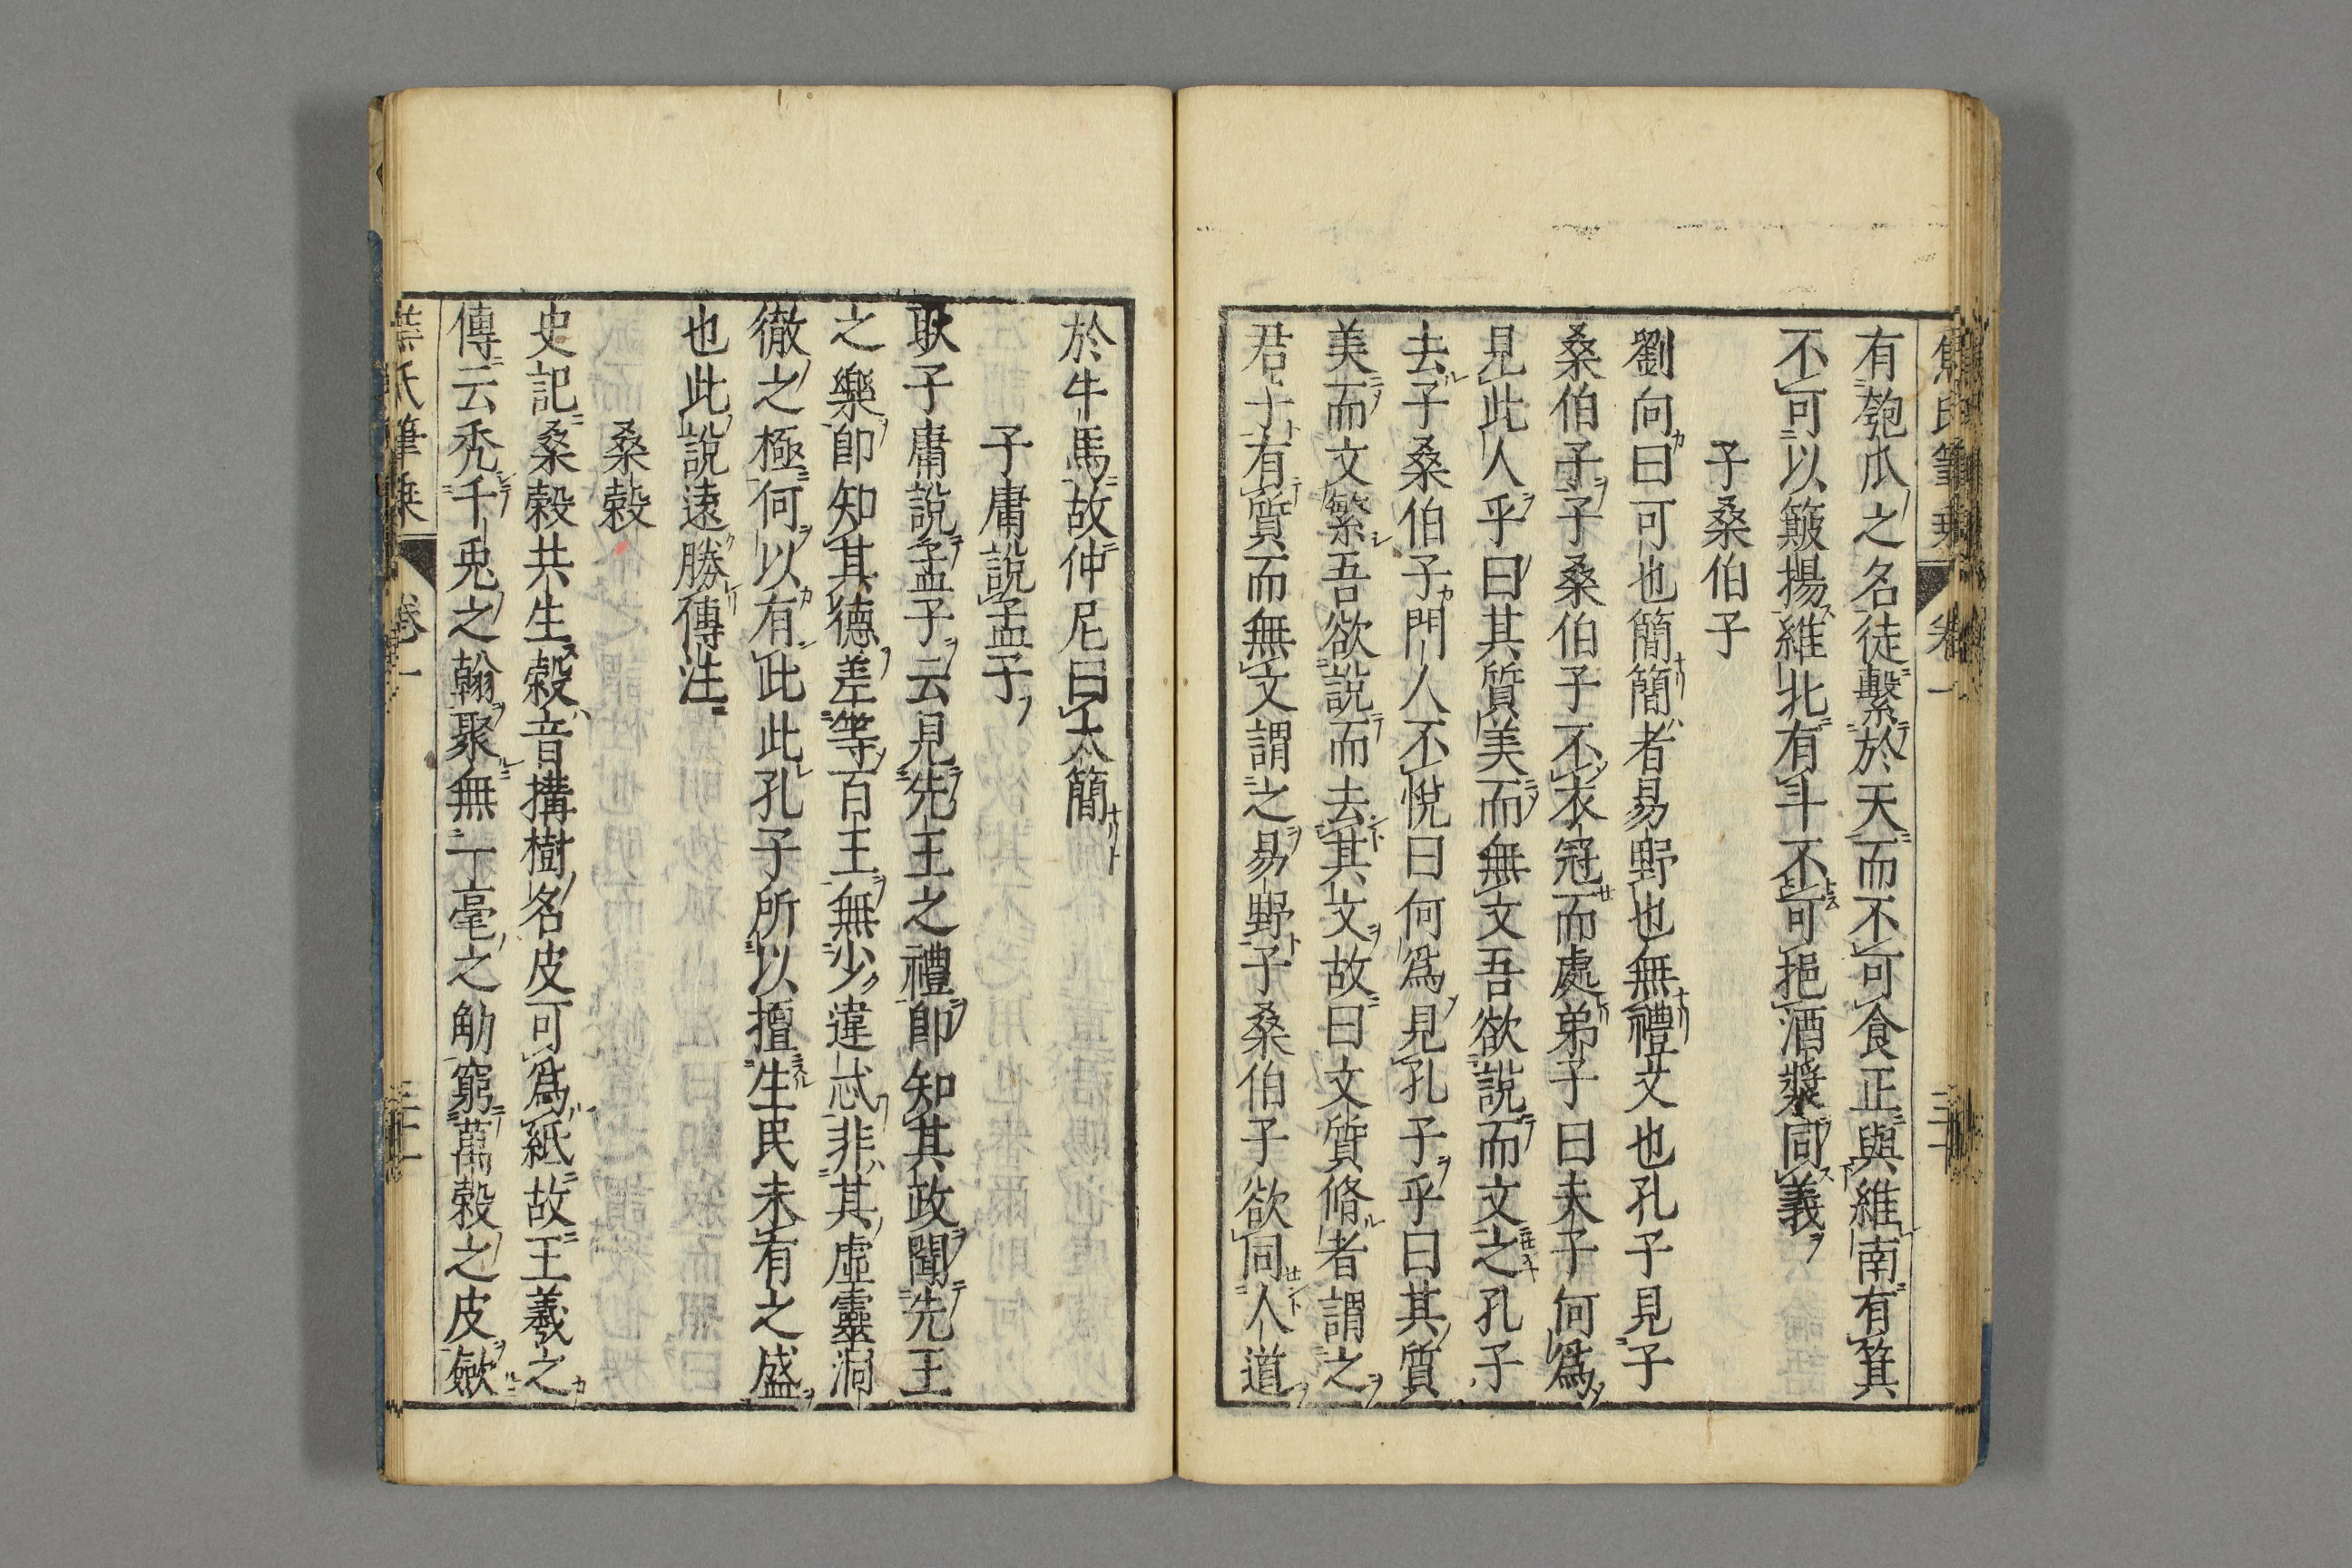 有匏瓜之名徒繫於天而不可食正與維南有箕
不可以簸揚維北有斗不可挹酒漿同義
子桑伯子
劉向曰可也簡簡者易野也無禮文也孔子見子
桑伯子子桑伯子不衣冠而處弟子曰夫子何爲
見此人乎曰其質美而無文吾欲說而文之孔子
去子桑伯子門人不悅曰何爲見孔子乎曰其質
美而文繁吾欲說而去其文故曰文質脩者謂之
君子有質而無文謂之易野子桑伯子欲同人道
於牛馬故仲尼曰太簡
子庸說孟子
耿子庸說孟子云見先王之禮卽知其政聞先王
之樂卽知其德差等百王無少違忒非其虛靈洞
徹之極何以有此此孔子所以擅生民未有之盛
也此說遠勝傳注
桑榖
史記桑榖共生榖音搆樹名皮可爲紙故王羲之
傳云禿千兎之翰聚無一毫之觔窮萬榖之皮歛
焦氏筆乗 卷一